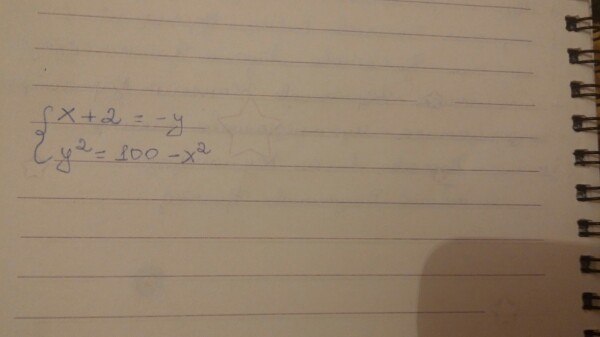 x + 2 = -y
y² = 100 - x²